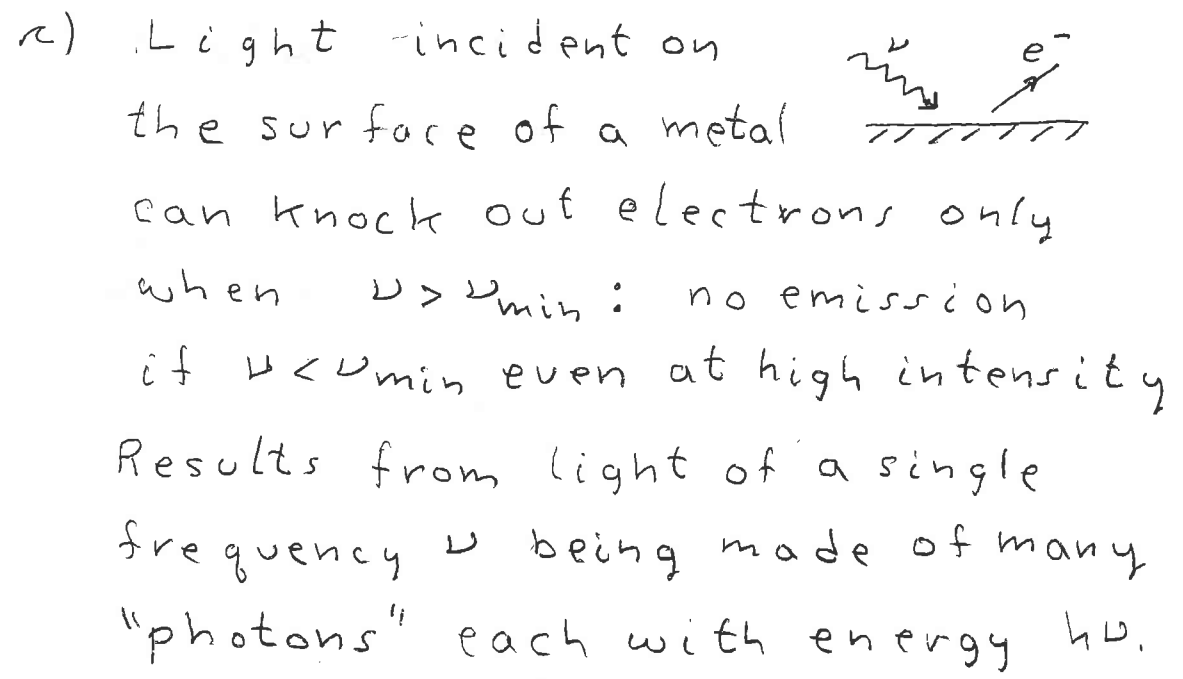 c) Light incident on
ν e⁻
the surface of a metal
can knock out electrons only
when ν > νmin : no emission
if ν < νmin even at high intensity
Results from light of a single
frequency ν being made of many
"photons" each with energy hν.